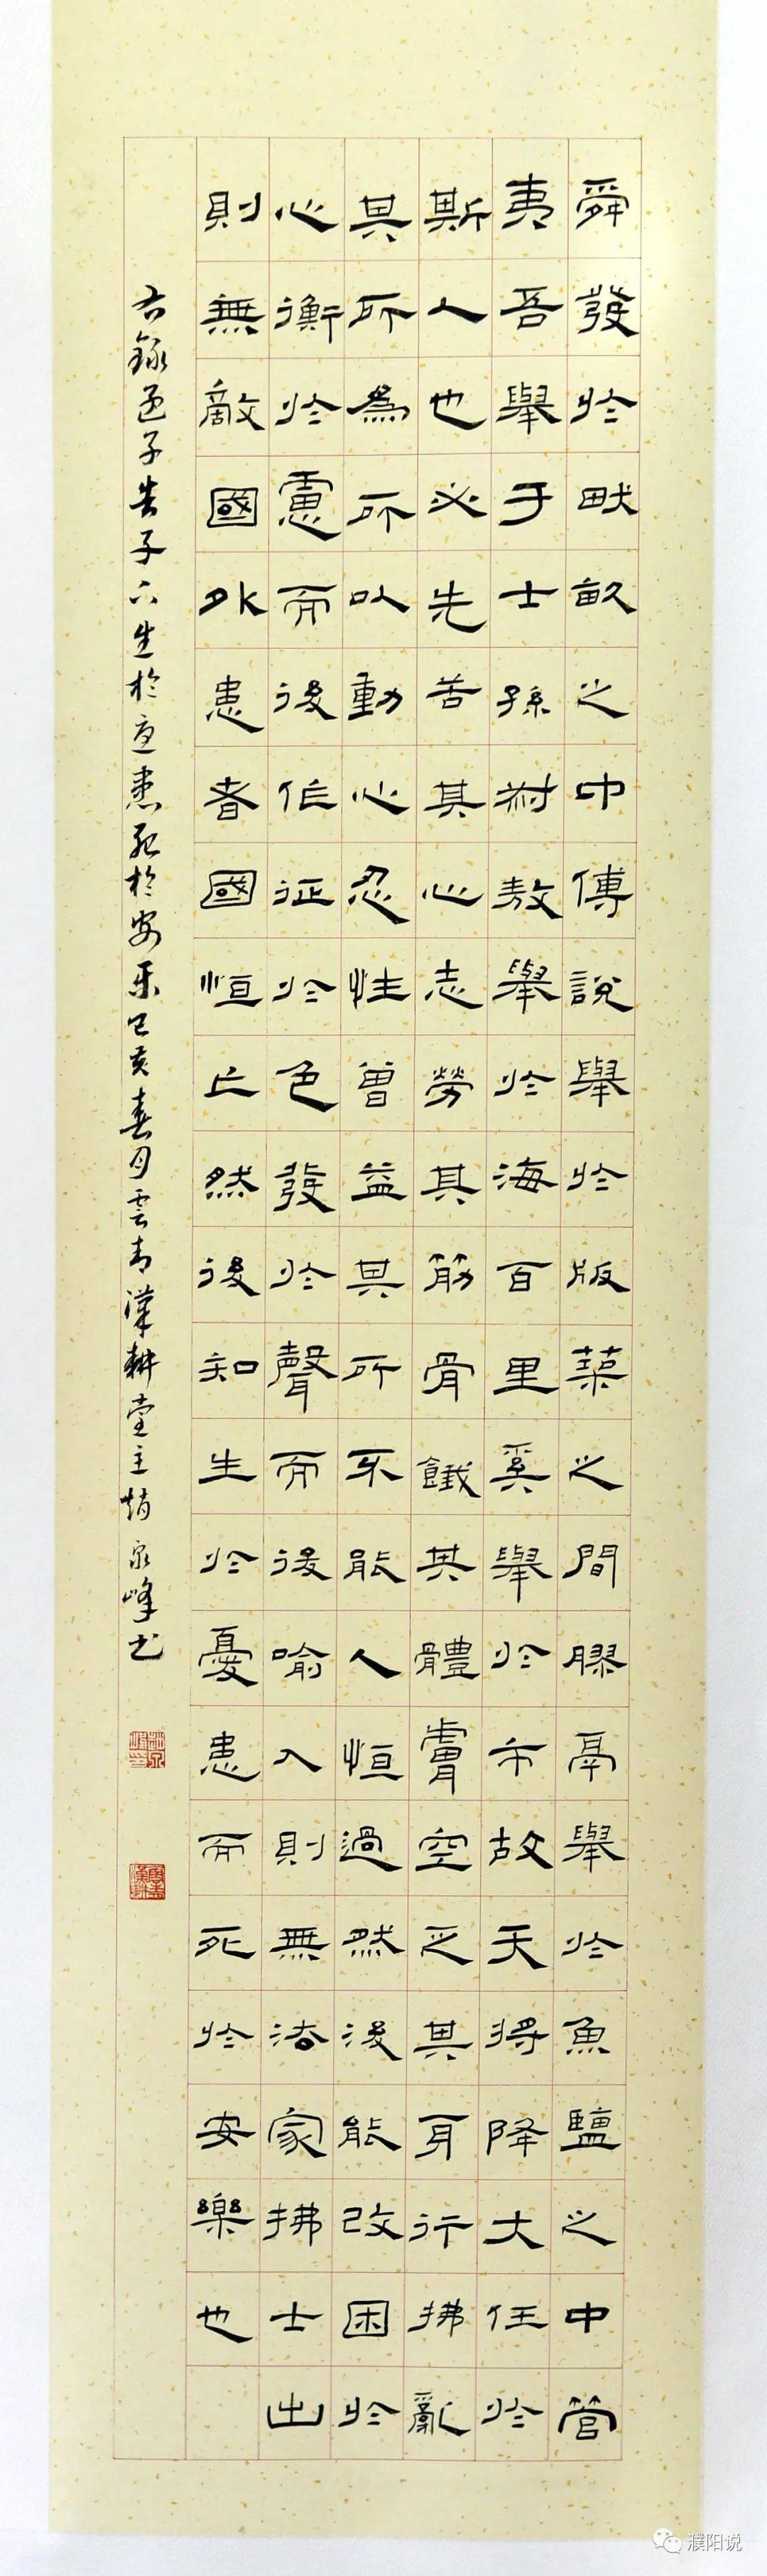 舜發於畎畝之中傅說舉於版築之間膠鬲舉於魚鹽之中管
夷吾舉于士孫叔敖舉於海百里奚舉於市故天將降大任於
斯人也必先苦其心志勞其筋骨餓其體膚空乏其身行拂亂
其所為所以動心忍性曾益其所不能人恒過然後能改困於
心衡於慮而後作征於色發於聲而後喻入則無法家拂士出
則無敵國外患者國恒亡然後知生於憂患而死於安樂也
右錄孟子告子下生於憂患死於安乐己亥春月雲青漢耕堂主趙泉峰书
濮阳说